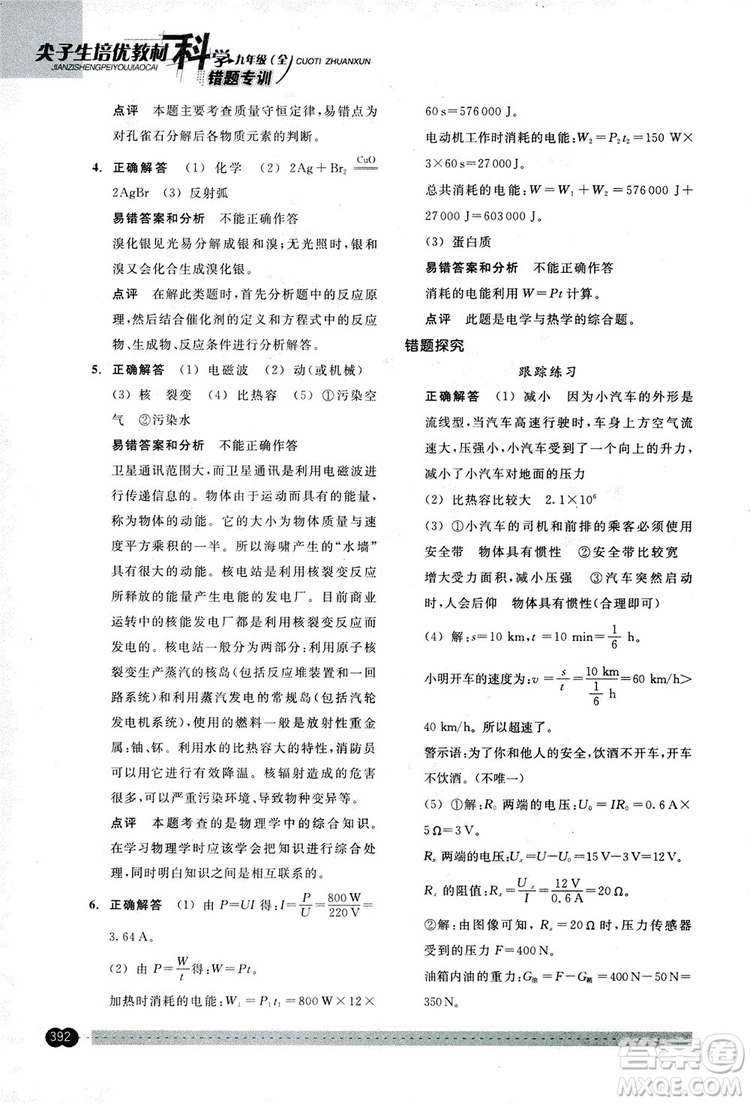 尖子生培优教材 科学·九年级(全) CUOTI ZHUANXUN
JIANZISHENGPEIYOUJIAOCAI 错题专训
点评 本题主要考查质量守恒定律,易错点为
对孔雀石分解后各物质元素的判断。
4. 正确解答 (1) 化学 (2) 2Ag+Br₂ ==CuO==
2AgBr (3) 反射弧
易错答案和分析 不能正确作答
溴化银见光易分解成银和溴;无光照时,银和
溴又会化合生成溴化银。
点评 在解此类题时,首先分析题中的反应原
理,然后结合催化剂的定义和方程式中的反应
物、生成物、反应条件等进行分析解答。
5. 正确解答 (1) 电磁波 (2) 动(或机械)
(3) 核 裂变 (4) 比热容 (5) ①污染空
气 ②污染水
易错答案和分析 不能正确作答
卫星通讯范围大,而卫星通讯是利用电磁波进
行传递信息的。物体由于运动而具有的能量,
称为物体的动能。它的大小为物体质量与速
度平方乘积的一半。所以海啸产生的“水墙”
具有动能。核电站是利用核裂变反应
所释放的能量产生电能的发电厂。目前商业
运转中的核能发电厂都是利用核裂变反应而
发电的。核电站一般分为两部分:利用原子核
裂变生产蒸汽的核岛(包括反应堆装置和一回
路系统)和利用蒸汽发电的常规岛(包括汽轮
发电机系统),使用的燃料一般是放射性重金
属:铀、钚。利用水的比热容大的特性,消防员
们用水进行有效降温。核辐射造成的危害
很多,可以严重污染环境、导致人员伤亡等。
点评 本题考查的是物理学中的综合知识。
在学习物理学时应该学会总结归纳,综合处
理,同时明白知识之间是相互联系的。
6. 正确解答 (1) 由 P=UI 得:I=P/U=800 W/220 V≈
3.64 A。
(2) 由 P=W/t 得:W=Pt
加热时消耗的电能:W₁=P₁t₁=800 W×12×
392
60 s=576000 J。
电动机工作时消耗的电能:W₂=P₂t₂=150 W
×3×60 s=27000 J。
总共消耗的电能:W=W₁+W₂=576000 J+
27000 J=603000 J。
(3) 蛋白质
易错答案和分析 不能正确作答
消耗的电能利用 W=Pt 计算。
点评 此题是电学与热学的综合题。
错题探究
跟踪练习
正确解答 (1) 减小 因为小汽车的外形是
流线型,当汽车高速行驶时,车身上方空气流
速大,压强小,小汽车受到了一个向上的升力,
减小了小汽车对地面的压力
(2) 比热容比较大 2.1×10⁶
(3) ①小汽车的司机和前排的乘客必须使用
安全带 物体具有惯性 ②安全带比较宽
增大受力面积,减小压强 ③汽车突然启动
时,人会后仰 物体具有惯性(合理即可)
(4) 解:s=10 km,t=10 min=1/6 h。
小明开车的速度为:v=s/t=10 km/(1/6 h)=60 km/h>
40 km/h。所以超速了。
警示语:为了你和他人的安全,饮酒不开车,开车
不饮酒。(不唯一)
(5) ①解:R₀ 两端的电压:U₀=IR₀=0.6 A×
5Ω=3 V。
Rₓ 两端的电压:Uₓ=U-U₀=12 V。
Rₓ 的阻值:Rₓ=Uₓ/I=12 V/0.6 A=20Ω。
②解:由图像可知,Rₓ=20Ω时,压力传感器
受到的压力 F=400 N。
油箱内油的重力:G油=F-G箱=400 N-50 N=
350 N。
答案圈
MXQE.COM